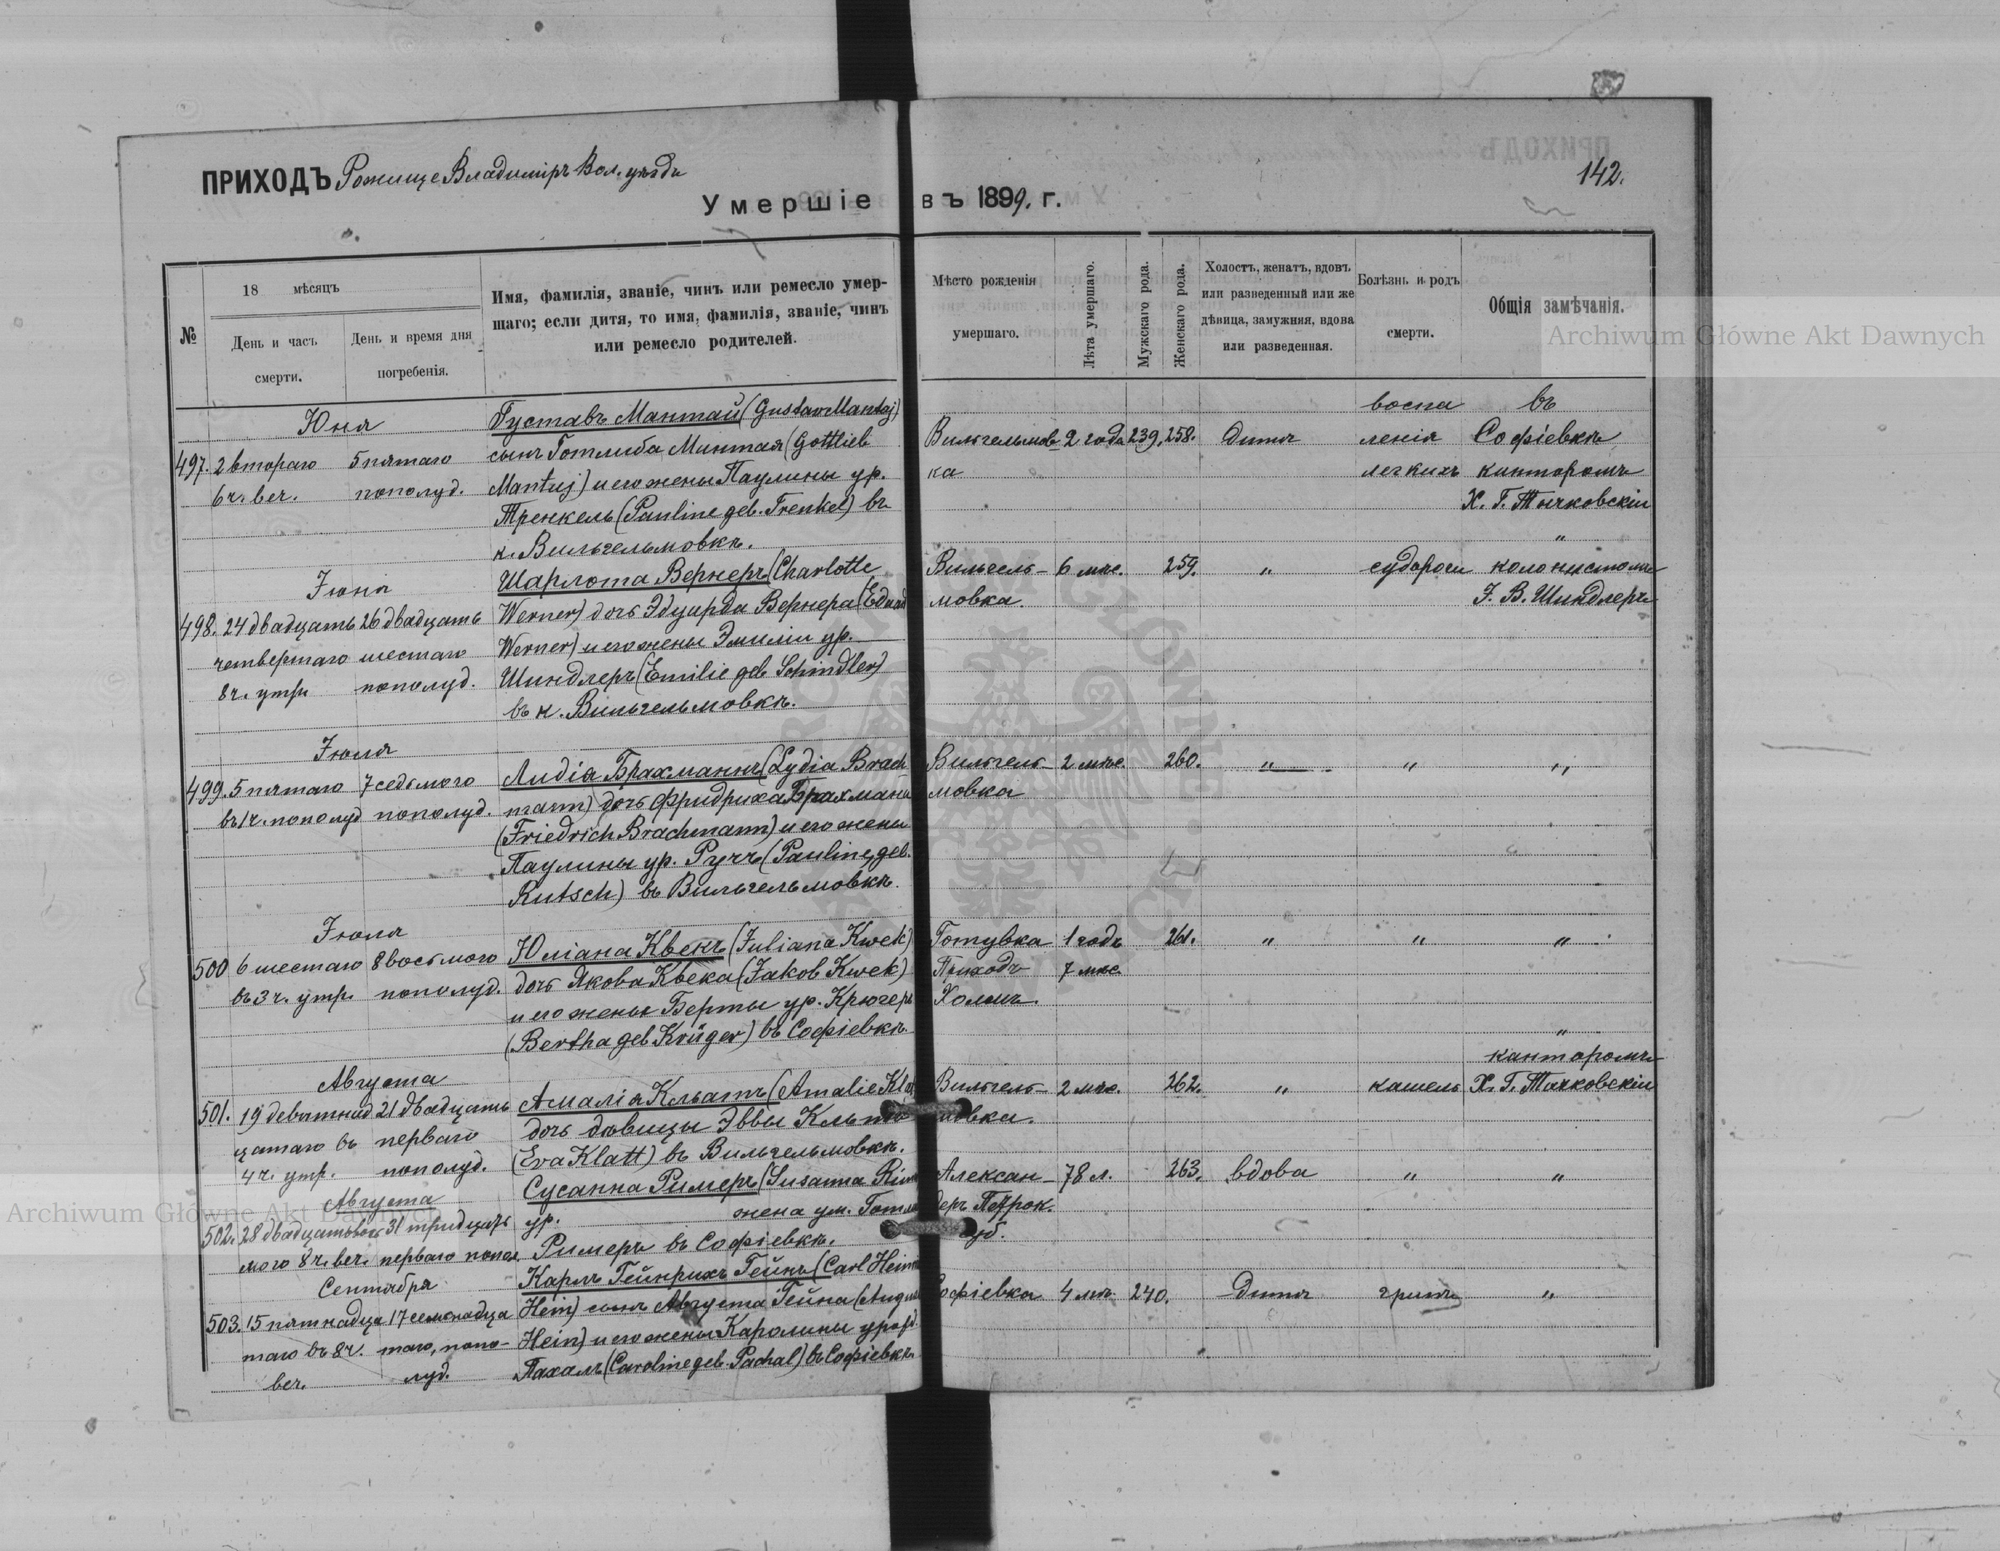 ПРИХОДЪ Рожище Владимір Вол. уѣзда
142.
Умершіе въ 1899. г.
№
18 мѣсяцъ
День и часъ смерти.
День и время дня погребенія.
Имя, фамилія, званіе, чинъ или ремесло умер-
шаго; если дитя, то имя, фамилія, званіе, чинъ
или ремесло родителей.
Мѣсто рожденія
умершаго.
Лѣта умершаго.
Мужскаго рода.
Женскаго рода.
Холостъ, женатъ, вдовъ
или разведенный или же
дѣвица, замужняя, вдова
или разведенная.
Болѣзнь и родъ
смерти.
Общія замѣчанія.
Archiwum Główne Akt Dawnych
Юня
497. 2 втораго
6 ч. веч.
5 пятаго
пополуд.
Густавъ Мантай (Gustav Mantaj)
сынъ Готлиба Мантая (Gottlieb
Mantaj) и его жены Паулины ур.
Тренкель (Pauline geb. Trenkel) въ
к. Вильгельмовкѣ.
Вильгельмов
ка
2 года
239.
258.
Дитя
воспа
ленія
легкихъ
въ
Софіевкѣ
канторомъ
Х. Г. Тачковскій
Іюня
498. 24 двадцать
четвертаго
8 ч. утра
26 двадцать
шестаго
пополуд.
Шарлота Вернеръ (Charlotte
Werner) дочь Эдуарда Вернера (Eduard
Werner) и его жены Эмиліи ур.
Шиндлеръ (Emilie geb Schindler)
въ к. Вильгельмовкѣ.
Вильгель-
мовка.
6 мѣс.
259.
"
судороги
"
колонистомъ
Г. В. Шиндлеръ
Іюля
499. 5 пятаго
въ 1 ч. пополуд
7 седьмого
пополуд.
Лидія Брахманнъ (Lydia Brach-
mann) дочь Фридриха Брахмана
(Friedrich Brachmann) и его жены
Паулины ур. Ручъ (Pauline geb.
Rutsch) въ Вильгельмовкѣ.
Вильгель-
мовка
2 мѣс.
260.
"
"
"
Іюля
500 6 шестаго
въ 3 ч. утр.
8 восьмого
пополуд.
Юліана Квекъ (Juliana Kwek)
дочь Якова Квека (Jakob Kwek)
и его жены Берты ур. Крюгеръ
(Bertha geb Krüger) въ Софіевкѣ
Готувка
Приходъ
Холмъ.
1 годъ
7 мѣс.
261.
"
"
"
Августа
501. 19 девятнад
цатаго въ
4 ч. утр.
21 двадцать
перваго
пополуд.
Амалія Кльатъ (Amalie Kla
дочь дѣвицы Эввы Кльат
(Eva Klatt) въ Вильгельмовкѣ.
Вильгель-
мовка.
2 мѣс.
262.
"
кашель
"
канторомъ
Х. Г. Тачковскій
Августа
502. 28 двадцать вось
маго 8 ч. веч.
31 тридцать
перваго попол
Сусанна Римеръ (Susanna Rim
ур. жена ум. Готл
Римеръ въ Софіевкѣ.
Алексан-
деръ Петрок.
губ.
78 л.
263.
вдова
"
"
Сентября
503. 15 пятнадца
таго въ 8 ч.
веч.
17 семнадца
таго, попо-
луд.
Карлъ Гейнрихъ Гейнъ (Carl Hein
Hein) сынъ Августа Гейна (Augu
Hein) и его жены Каролины урожд.
Пахалъ (Caroline geb. Pachal) въ Софіевкѣ
Софіевка
4 мѣс.
240.
Дитя
грипъ
"
Archiwum Główne Akt Dawnych